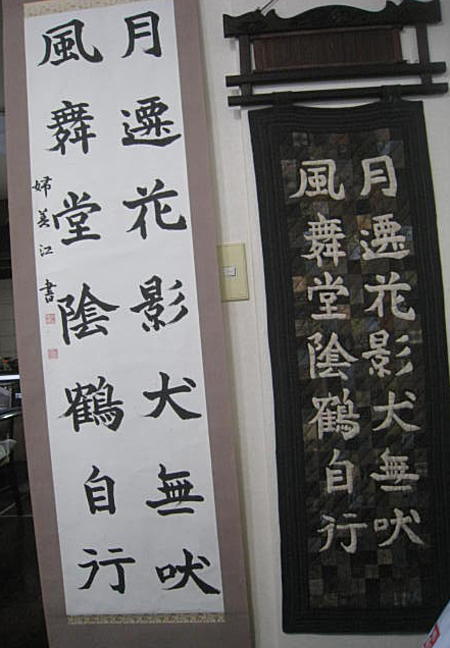 月遷花影犬無吠
風舞堂陰鶴自行
婦美江 書
月遷花影犬無吠
風舞堂陰鶴自行